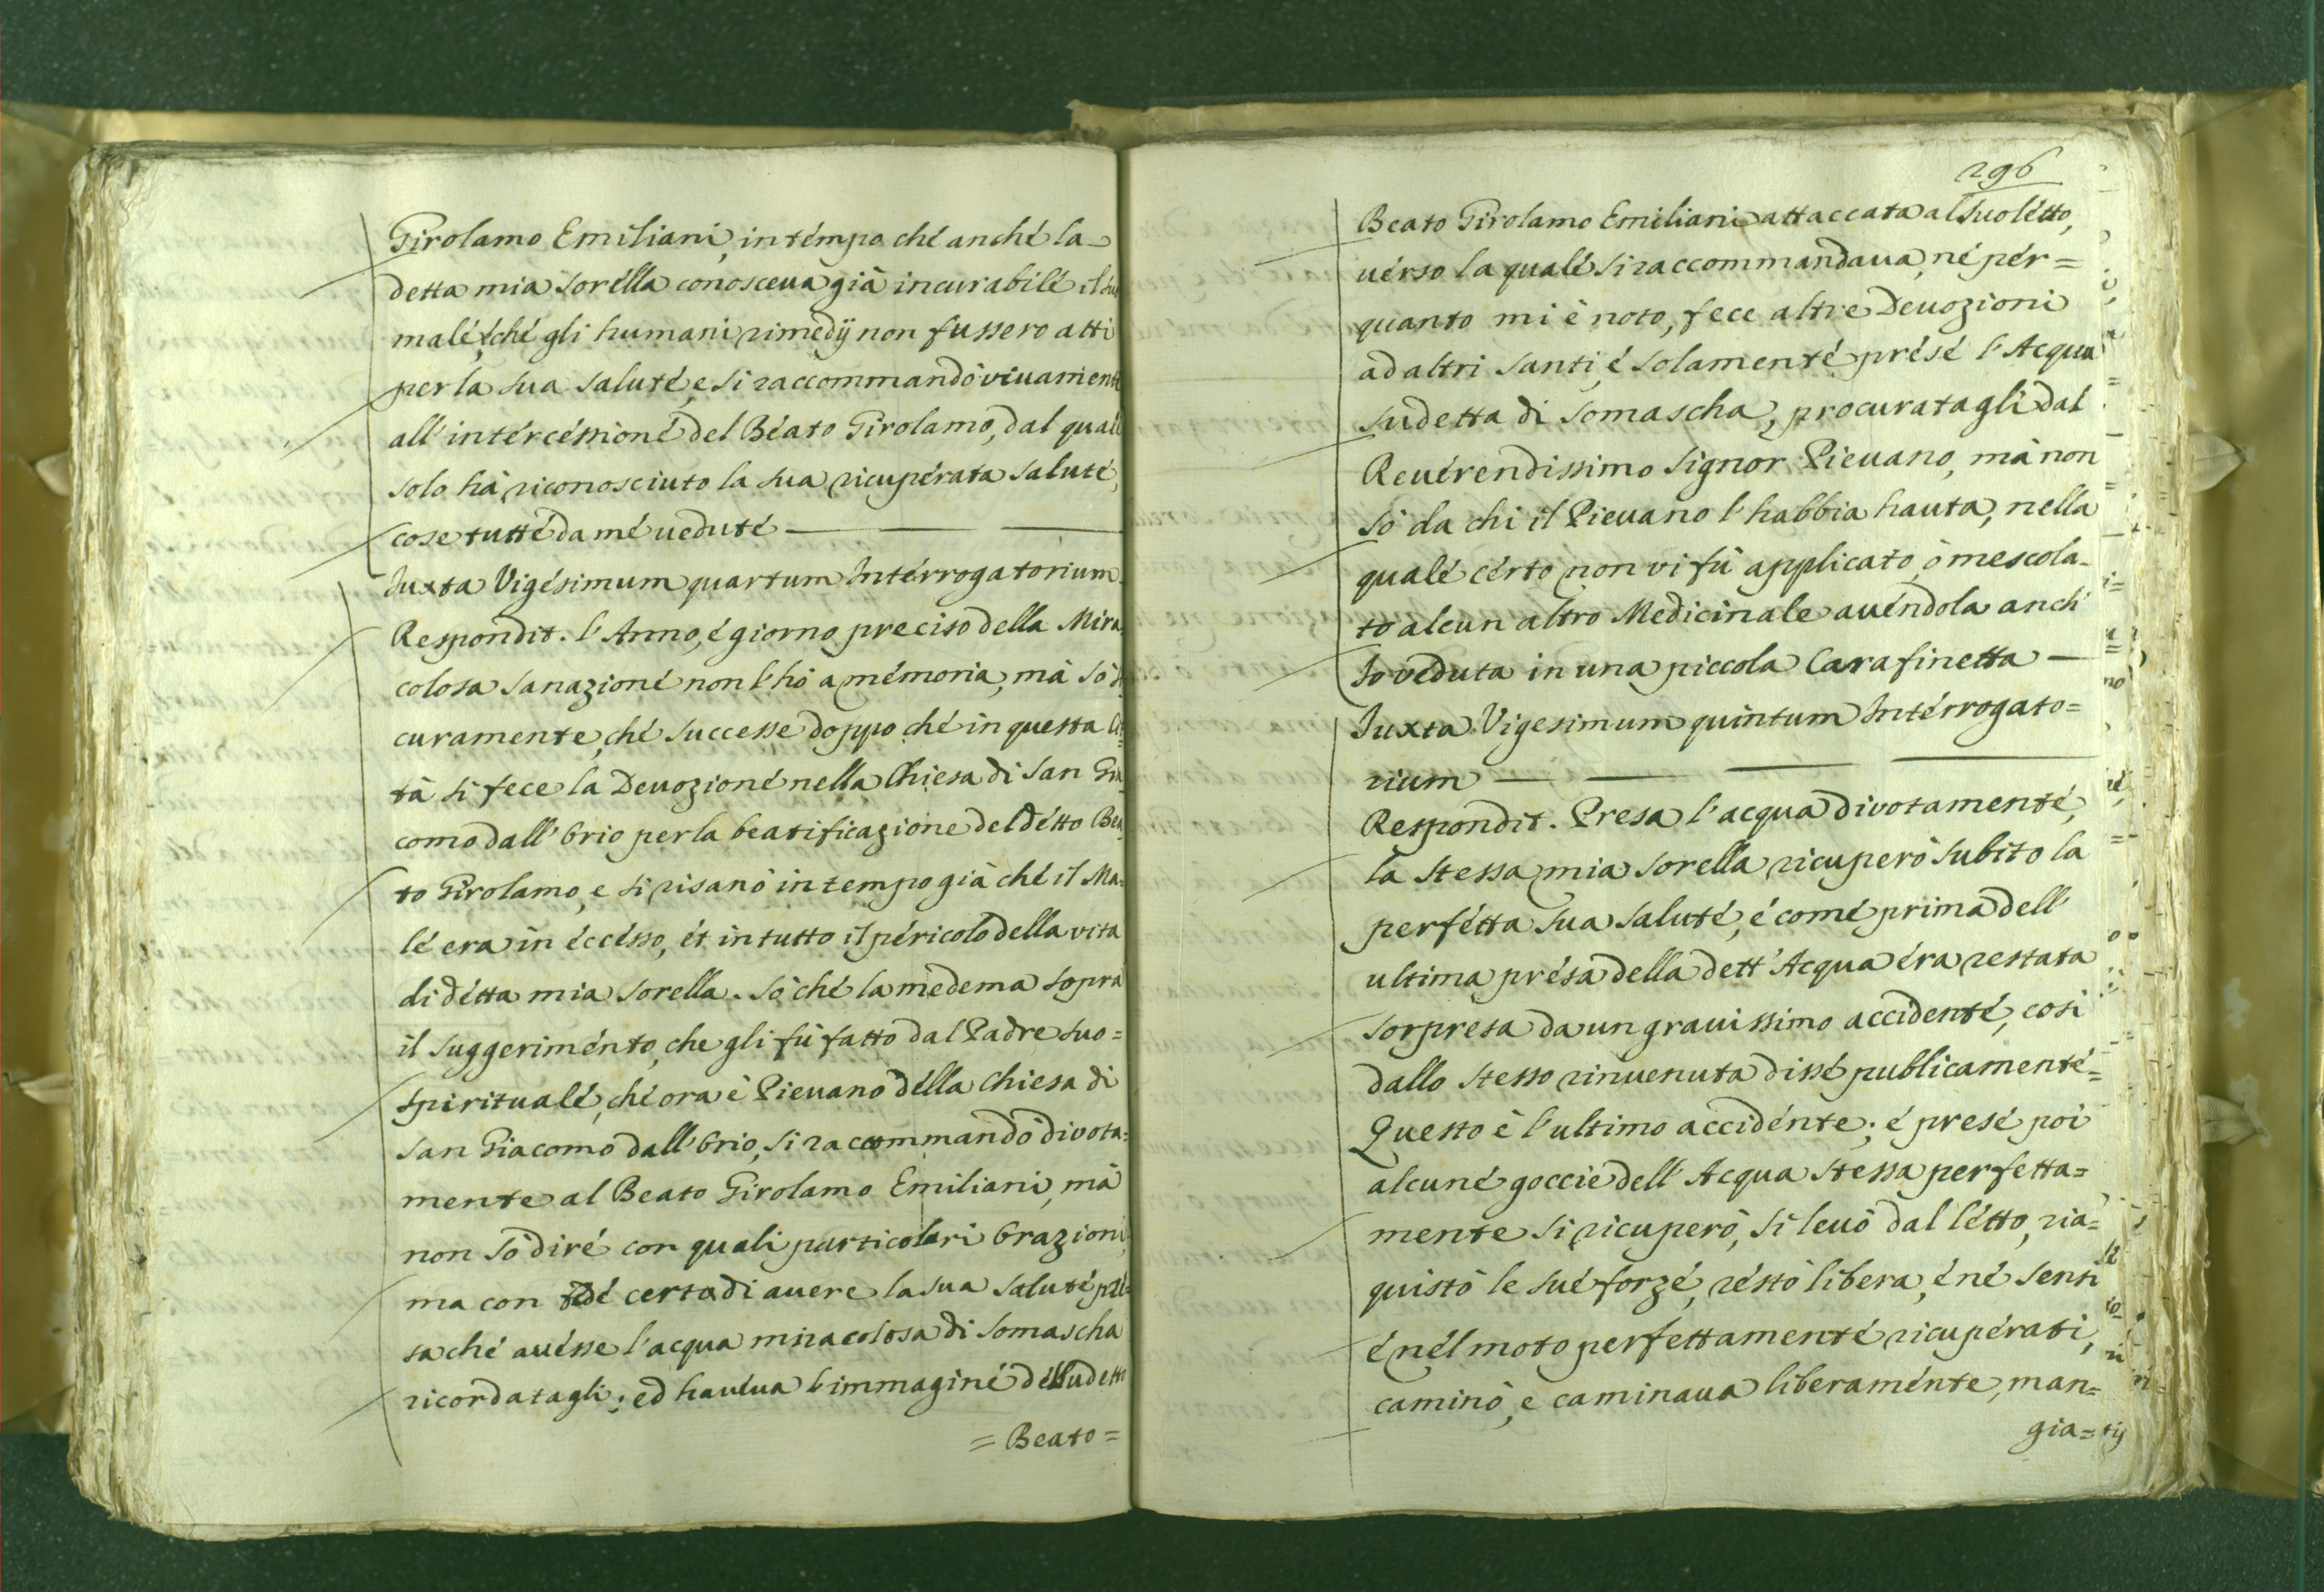 Girolamo Emiliani, in témpo ché anché la
detta mia Sorélla conosceua già incurabilé il suo
malé, é ché gli humani rimedÿ non fussero atti
per la sua saluté, e si raccommandò viuament
all'intércéssioné del Béato Girolamo, dal qualé
solo hà riconosciuto la sua ricupérata saluté,
cose tutté da mé ueduté
Iuxta Vigésimum quartum Intérrogatorium
Respondit. l'Anno, é giorno preciso della Mira=
colosa sanazioné non l'hò a mémoria, mà sò si
curamente, ché successe doppo ché in questa Cit=
tà si fece la Deuozioné nella Chiesa di San Gia
como dall'Orio per la beatificazione del détto Bea
to Girolamo, e si risanò in tempo già ché il Ma=
lé era in éccésso, ét in tutto il péricolo della vita
di détta mia Sorella. Sò ché la medema sopra
il suggeriménto, che gli fù fatto dal Padre suo=
spiritualé, ché ora è Pieuano délla Chiesa di
San Giacomo dall'Orio, si raccommandò divota=
mente al Beato Girolamo Emiliani, mà
non sò diré con quali particolari Orazioni,
ma con fédé certa di auere la sua saluté pre=
sa ché auésse l'acqua miracolosa di Somascha
ricordatagli; ed hauéua l'immaginé dél sudetto
= Beato =
296
Beato Girolamo Emiliani attaccata al suo létto,
uérso la qualé si raccommandaua, né pér=
quanto mi è noto, fece altre Deuozioni
ad altri Santi, é solamenté présé l'Acqua
sudetta di Somascha, procuratagli dal
Reuérendissimo Signor Pieuano, mà non
sò da chi il Pieuano l'habbia hauta, nella
qualé cérto non vi fù applicato, ò mescola=
to alcun altro Medicinale auéndola anch'
Io veduta in una piccola Carafinetta
Iuxta Vigesimum quintum Intérrogato=
rium
Respondit. Presa l'acqua divotamenté,
la stessa mia Sorella ricuperò subito la
perfétta sua saluté, é comé prima dell'
ultima présa della dett'Acqua éra restata
sorpresa da un grauissimo accidenté, cosi
dallo stesso rinuenuta dissé publicamenté=
Questo è l'ultimo accidénte; é presé poi
alcuné goccie dell'Acqua stessa perfetta=
mente si ricuperò, si leuò dal létto, ria=
quistò le sué forzé, réstò libera, é né sensi
é nél moto perfettamenté ricupérati,
caminò, e caminaua liberaménte, man=
gia=